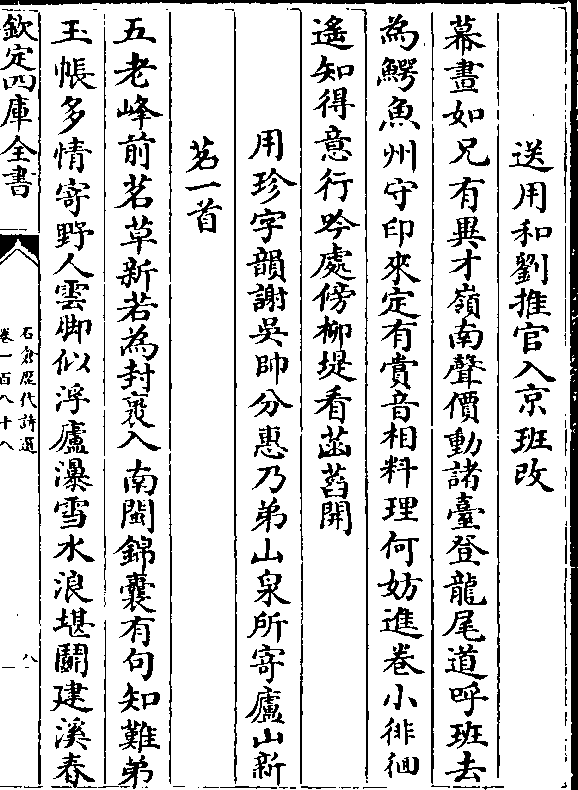 送用和劉推官入京班改
幕畫如兄有異才嶺南聲價動諸臺登龍尾道呼班去
為鰐魚州守印來定有賞音相料理何妨進卷小徘徊
遙知得意行吟處傍柳堤看菡萏開
用珍字韻謝吳帥分惠乃弟山泉所寄廬山新
茗一首
五老峰前茗草新若為封裹入南閩錦囊有句知難弟
玉帳多情寄野人雲脚似浮廬瀑雪水浪堪鬭建溪春
欽定四庫全書
石倉歴代詩選
卷一百八十八
八